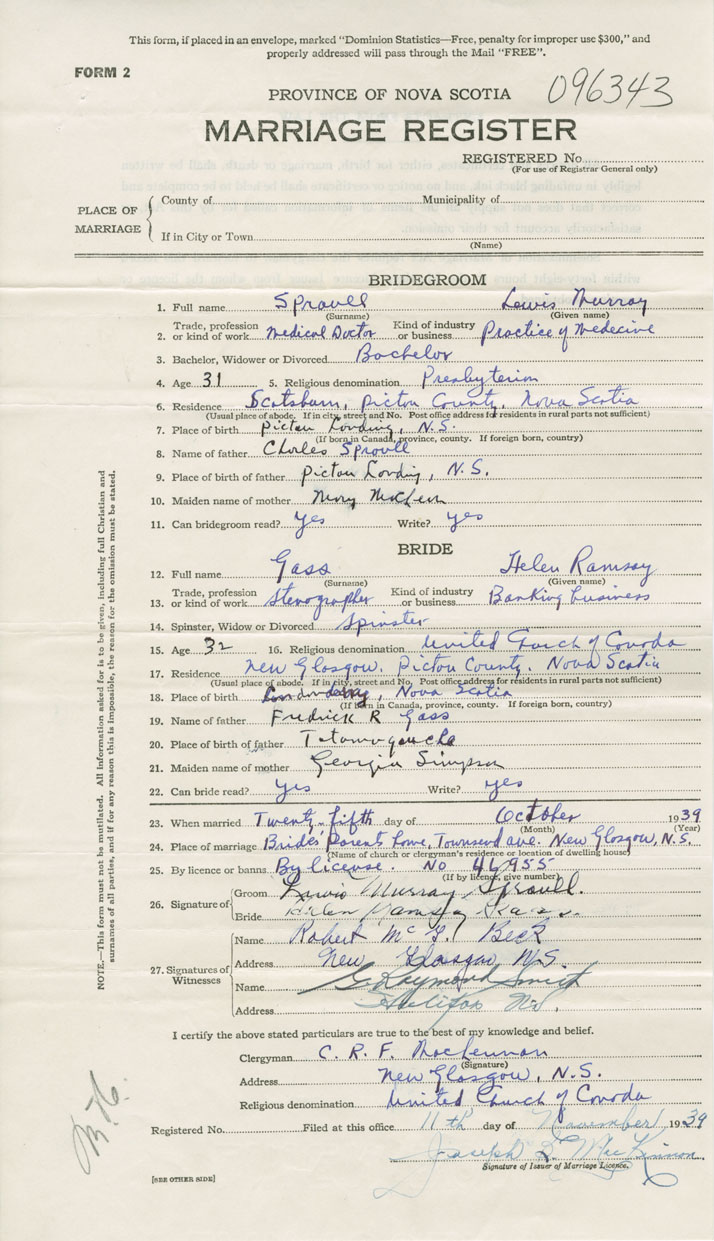 This form, if placed in an envelope, marked "Dominion Statistics—Free, penalty for improper use $300," and
properly addressed will pass through the Mail "FREE".
FORM 2
096343
PROVINCE OF NOVA SCOTIA
MARRIAGE REGISTER
REGISTERED No.
(For use of Registrar General only)
PLACE OF MARRIAGE
County of Municipality of
If in City or Town
(Name)
BRIDEGROOM
1. Full name Sproull Lewis Murray
(Surname) (Given name)
2. Trade, profession or kind of work Medical Doctor Kind of industry or business Practice of Medecine
3. Bachelor, Widower or Divorced Bachelor
4. Age 31 5. Religious denomination Presbyterian
6. Residence Scotsburn, Pictou County, Nova Scotia
(Usual place of abode. If in city, street and No. Post office address for residents in rural parts not sufficient)
7. Place of birth Pictou Landing, N.S.
(If born in Canada, province, county. If foreign born, country)
8. Name of father Charles Sproull
9. Place of birth of father Pictou Landing, N.S.
10. Maiden name of mother Mary
11. Can bridegroom read? Yes Write? Yes
BRIDE
12. Full name Gass Helen Ramsay
(Surname) (Given name)
13. Trade, profession or kind of work Stenographer Kind of industry or business Banking business
14. Spinster, Widow or Divorced Spinster
15. Age 32 16. Religious denomination United Church of Canada
17. Residence New Glasgow. Pictou County. Nova Scotia
(Usual place of abode. If in city, street and No. Post office address for residents in rural parts not sufficient)
18. Place of birth , Nova Scotia
(If born in Canada, province, county. If foreign born, country)
19. Name of father Fredrick R Gass
20. Place of birth of father Tatamagouche
21. Maiden name of mother Georgia Simpson
22. Can bride read? Yes Write? Yes
23. When married Twenty-fifth day of October 1939
(Month) (Year)
24. Place of marriage Brides Parents home, Townsend ave. New Glasgow, N.S.
(Name of church or clergyman's residence or location of dwelling house)
25. By licence or banns By license. No 46955
(If by licence, give number)
26. Signature of Groom Lewis Murray Sproull.
Bride Helen Ramsay Gass.
27. Signatures of Witnesses
Name Robert McG. Beck
Address New Glasgow N.S.
Name G. Raymond Smith
Address Halifax N.S.
I certify the above stated particulars are true to the best of my knowledge and belief.
Clergyman C. R. F. MacLennan
(Signature)
Address New Glasgow, N.S.
Religious denomination United Church of Canada
Registered No. Filed at this office 11th day of November 1939
Joseph D. MacKinnon
Signature of Issuer of Marriage Licence.
[SEE OTHER SIDE]
NOTE.—This form must not be mutilated. All information asked for is to be given, including full Christian and
surnames of all parties, and if for any reason this is impossible, the reason for the omission must be stated.